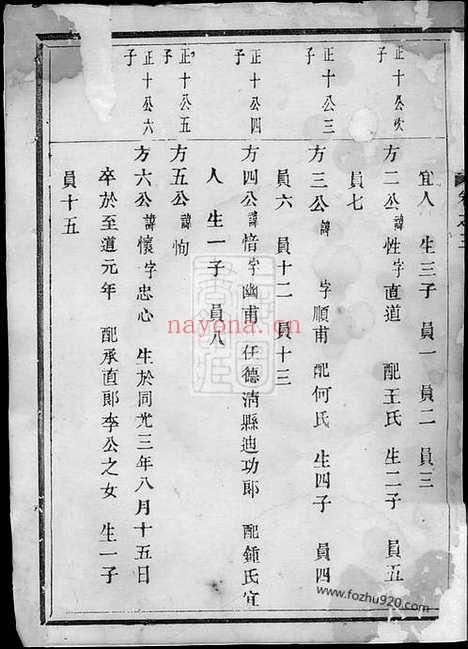 宜人 生三子 員一 員二 員三
正十公次子
方二公諱性字直道 配王氏 生二子 員五
員七
正十公三子
方三公諱 字順甫 配何氏 生四子 員四
員六 員十二 員十三
正十公四子
方四公諱愔字幽甫 任德清縣迪功郎 配鍾氏宜
人 生一子 員八
正十公五子
方五公諱恂
正十公六子
方六公諱懷字忠心 生於同光三年八月十五日
卒於至道元年 配承直郎李公之女 生一子
員十五
nayona.cn
www.fozhu920.com